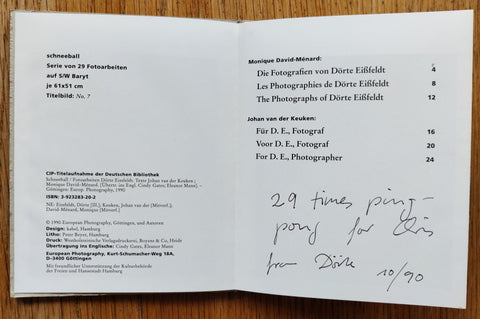 schneeball
Serie von 29 Fotoarbeiten
auf S/W Baryt
je 61x51 cm
Titelbild: No. 7
CIP-Titelaufnahme der Deutschen Bibliothek
Schneeball / Fotoarbeiten Dörte Eissfeldt. Texte Johan van der Keuken ;
Monique David-Ménard. [Übertr. ins Engl. Cindy Gates; Eleanor Mann]. –
Göttingen: Europ. Photography, 1990
ISBN: 3-923283-20-2
NE: Eissfeldt, Dörte [Ill.]; Keuken, Johan van der [Mitverf.];
David-Ménard, Monique [Mitverf.]
© 1990 European Photography, Göttingen, und Autoren
Design: kebel, Hamburg
Litho: Peter Beyer, Hamburg
Druck: Westholsteinische Verlagsdruckerei, Boyens & Co, Heide
Übertragung ins Englische: Cindy Gates, Eleanor Mann
European Photography, Kurt-Schumacher-Weg 18A,
D-3400 Göttingen
Mit freundlicher Unterstützung der Kulturbehörde
der Freien und Hansestadt Hamburg
Monique David-Ménard:
Die Fotografien von Dörte Eißfeldt 4
Les Photographies de Dörte Eißfeldt 8
The Photographs of Dörte Eißfeldt 12
Johan van der Keuken:
Für D. E., Fotograf 16
Voor D. E., Fotograf 20
For D. E., Photographer 24
29 times ping-
pong for Chris
from Dörte 10/90